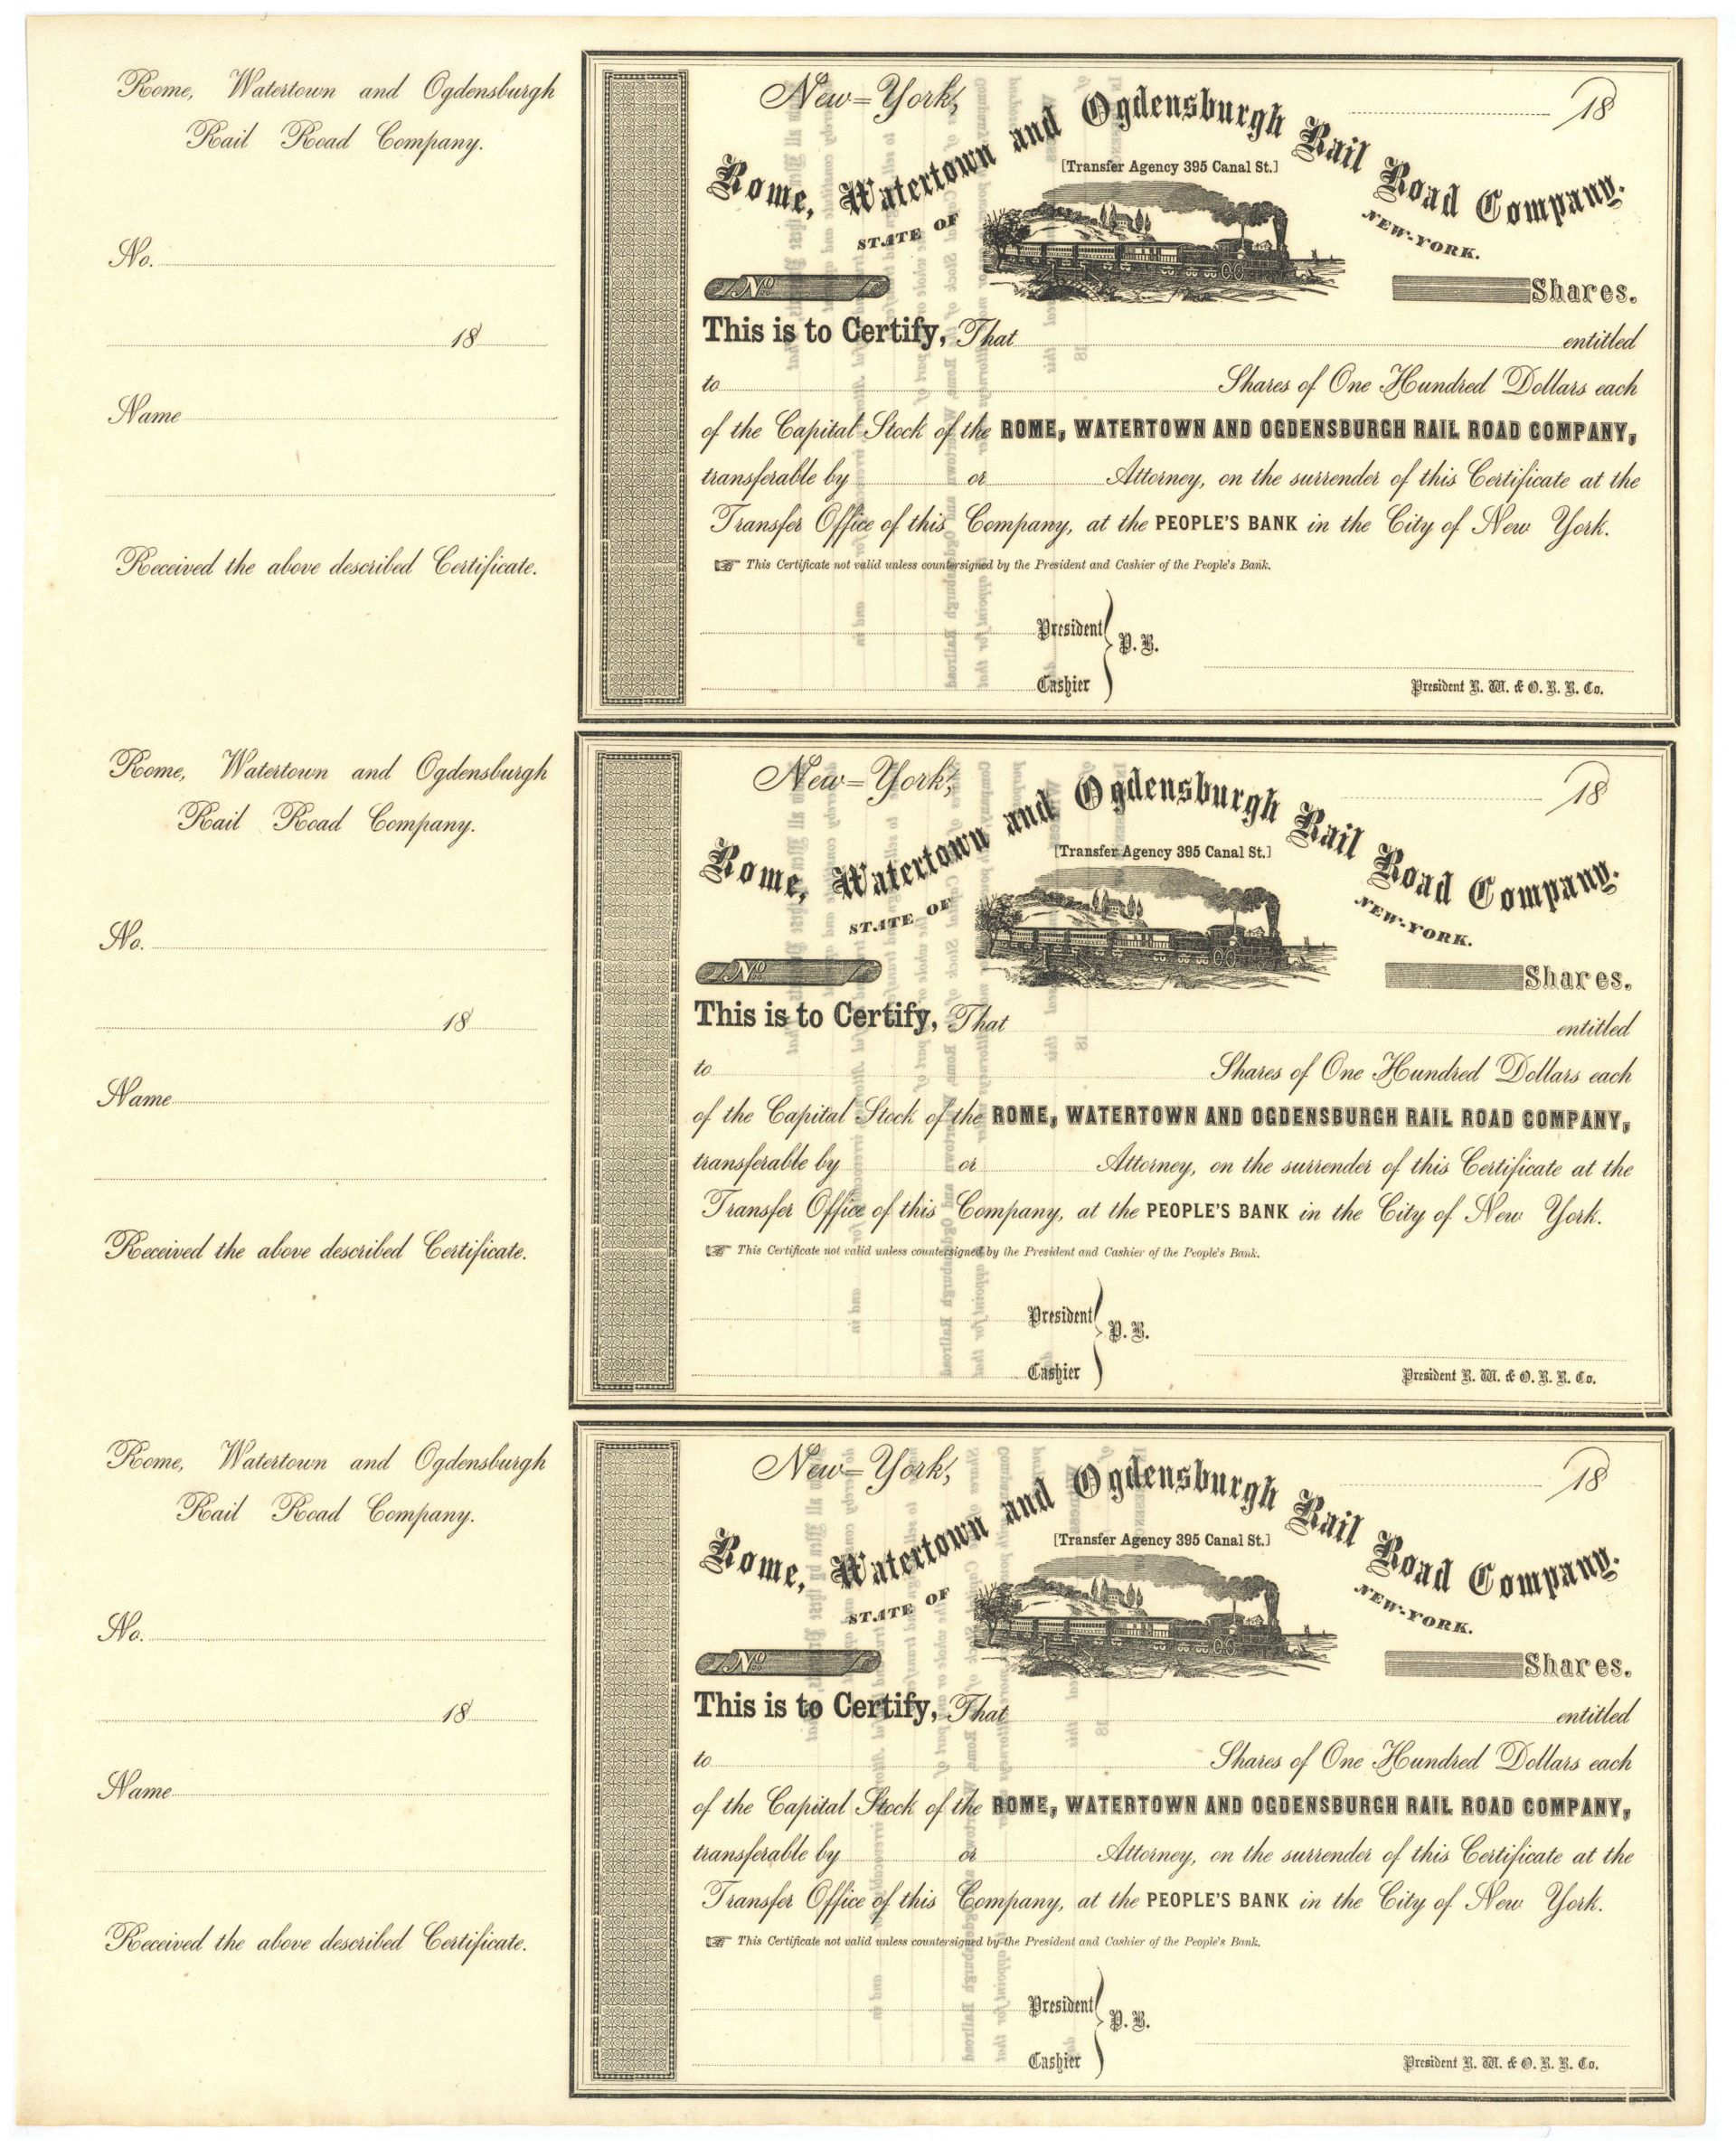 Rome, Watertown and Ogdensburgh
Rail Road Company.
No.
18
Name
Received the above described Certificate.
New=York, 18
Rome, Watertown and Ogdensburgh Rail Road Company.
[Transfer Agency 395 Canal St.]
STATE OF NEW-YORK.
No Shares.
This is to Certify, That entitled
to Shares of One Hundred Dollars each
of the Capital Stock of the ROME, WATERTOWN AND OGDENSBURGH RAIL ROAD COMPANY,
transferable by or Attorney, on the surrender of this Certificate at the
Transfer Office of this Company, at the PEOPLE'S BANK in the City of New York.
☞ This Certificate not valid unless countersigned by the President and Cashier of the People's Bank.
President
P. B.
Cashier
President R. W. & O. R. R. Co.
Rome, Watertown and Ogdensburgh
Rail Road Company.
No.
18
Name
Received the above described Certificate.
New=York, 18
Rome, Watertown and Ogdensburgh Rail Road Company.
[Transfer Agency 395 Canal St.]
STATE OF NEW-YORK.
No Shares.
This is to Certify, That entitled
to Shares of One Hundred Dollars each
of the Capital Stock of the ROME, WATERTOWN AND OGDENSBURGH RAIL ROAD COMPANY,
transferable by or Attorney, on the surrender of this Certificate at the
Transfer Office of this Company, at the PEOPLE'S BANK in the City of New York.
☞ This Certificate not valid unless countersigned by the President and Cashier of the People's Bank.
President
P. B.
Cashier
President R. W. & O. R. R. Co.
Rome, Watertown and Ogdensburgh
Rail Road Company.
No.
18
Name
Received the above described Certificate.
New=York, 18
Rome, Watertown and Ogdensburgh Rail Road Company.
[Transfer Agency 395 Canal St.]
STATE OF NEW-YORK.
No Shares.
This is to Certify, That entitled
to Shares of One Hundred Dollars each
of the Capital Stock of the ROME, WATERTOWN AND OGDENSBURGH RAIL ROAD COMPANY,
transferable by or Attorney, on the surrender of this Certificate at the
Transfer Office of this Company, at the PEOPLE'S BANK in the City of New York.
☞ This Certificate not valid unless countersigned by the President and Cashier of the People's Bank.
President
P. B.
Cashier
President R. W. & O. R. R. Co.